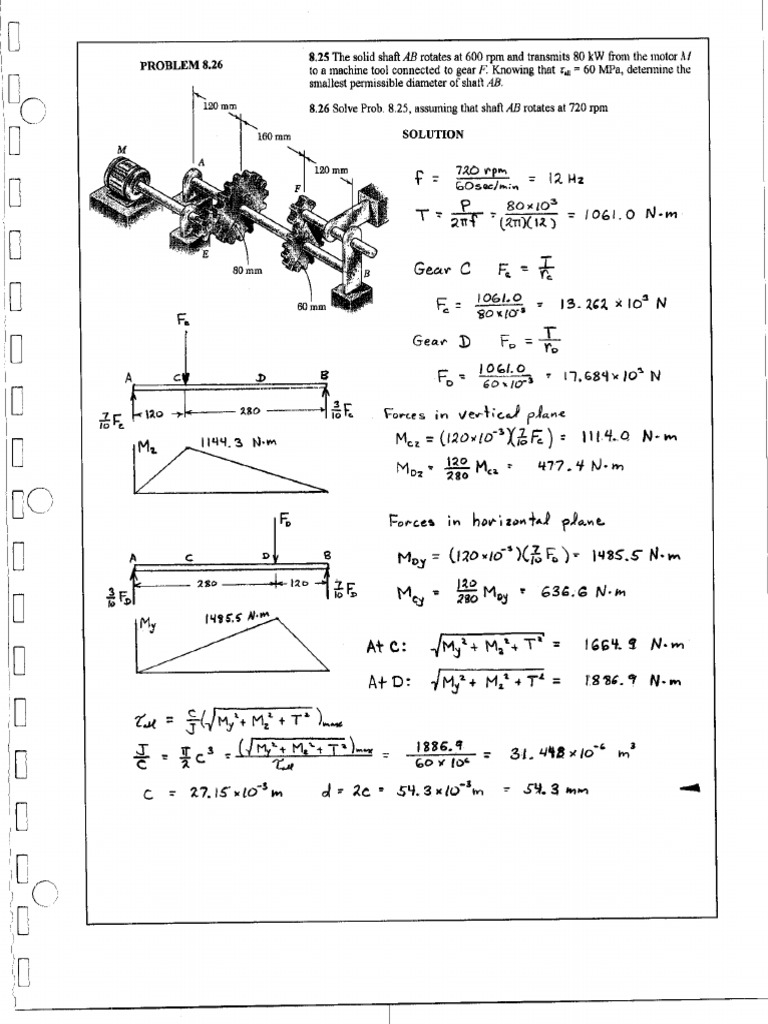 PROBLEM 8.26
8.25 The solid shaft AB rotates at 600 rpm and transmits 80 kW from the motor M
to a machine tool connected to gear F. Knowing that τall = 60 MPa, determine the
smallest permissible diameter of shaft AB.
8.26 Solve Prob. 8.25, assuming that shaft AB rotates at 720 rpm
SOLUTION
120 mm
160 mm
120 mm
M
A
F
E
B
80 mm
60 mm
f = 720 rpm / 60 sec/min = 12 Hz
T = P / 2πf = 80×10³ / (2π)(12) = 1061.0 N·m
Gear C Fc = T / rc
Fc = 1061.0 / 80×10⁻³ = 13.262 × 10³ N
Gear D FD = T / rD
FD = 1061.0 / 60×10⁻³ = 17.684×10³ N
Fc
A C D B
7/10 Fc 120 280 3/10 Fc
Mz 1144.3 N·m
Forces in vertical plane
Mcz = (120×10⁻³)(7/10 Fc) = 1114.0 N·m
MDz = 120/280 Mcz = 477.4 N·m
FD
A C D B
3/10 FD 280 120 7/10 FD
My 1485.5 N·m
Forces in horizontal plane
MDy = (120×10⁻³)(7/10 FD) = 1485.5 N·m
Mcy = 120/280 MDy = 636.6 N·m
At C: √My² + Mz² + T² = 1664.9 N·m
At D: √My² + Mz² + T² = 1886.9 N·m
τall = c/J (√My² + Mz² + T²)max
J/c = π/2 c³ = (√My² + Mz² + T²)max / τall = 1886.9 / 60×10⁶ = 31.448×10⁻⁶ m³
c = 27.15×10⁻³ m d = 2c = 54.3×10⁻³ m = 54.3 mm